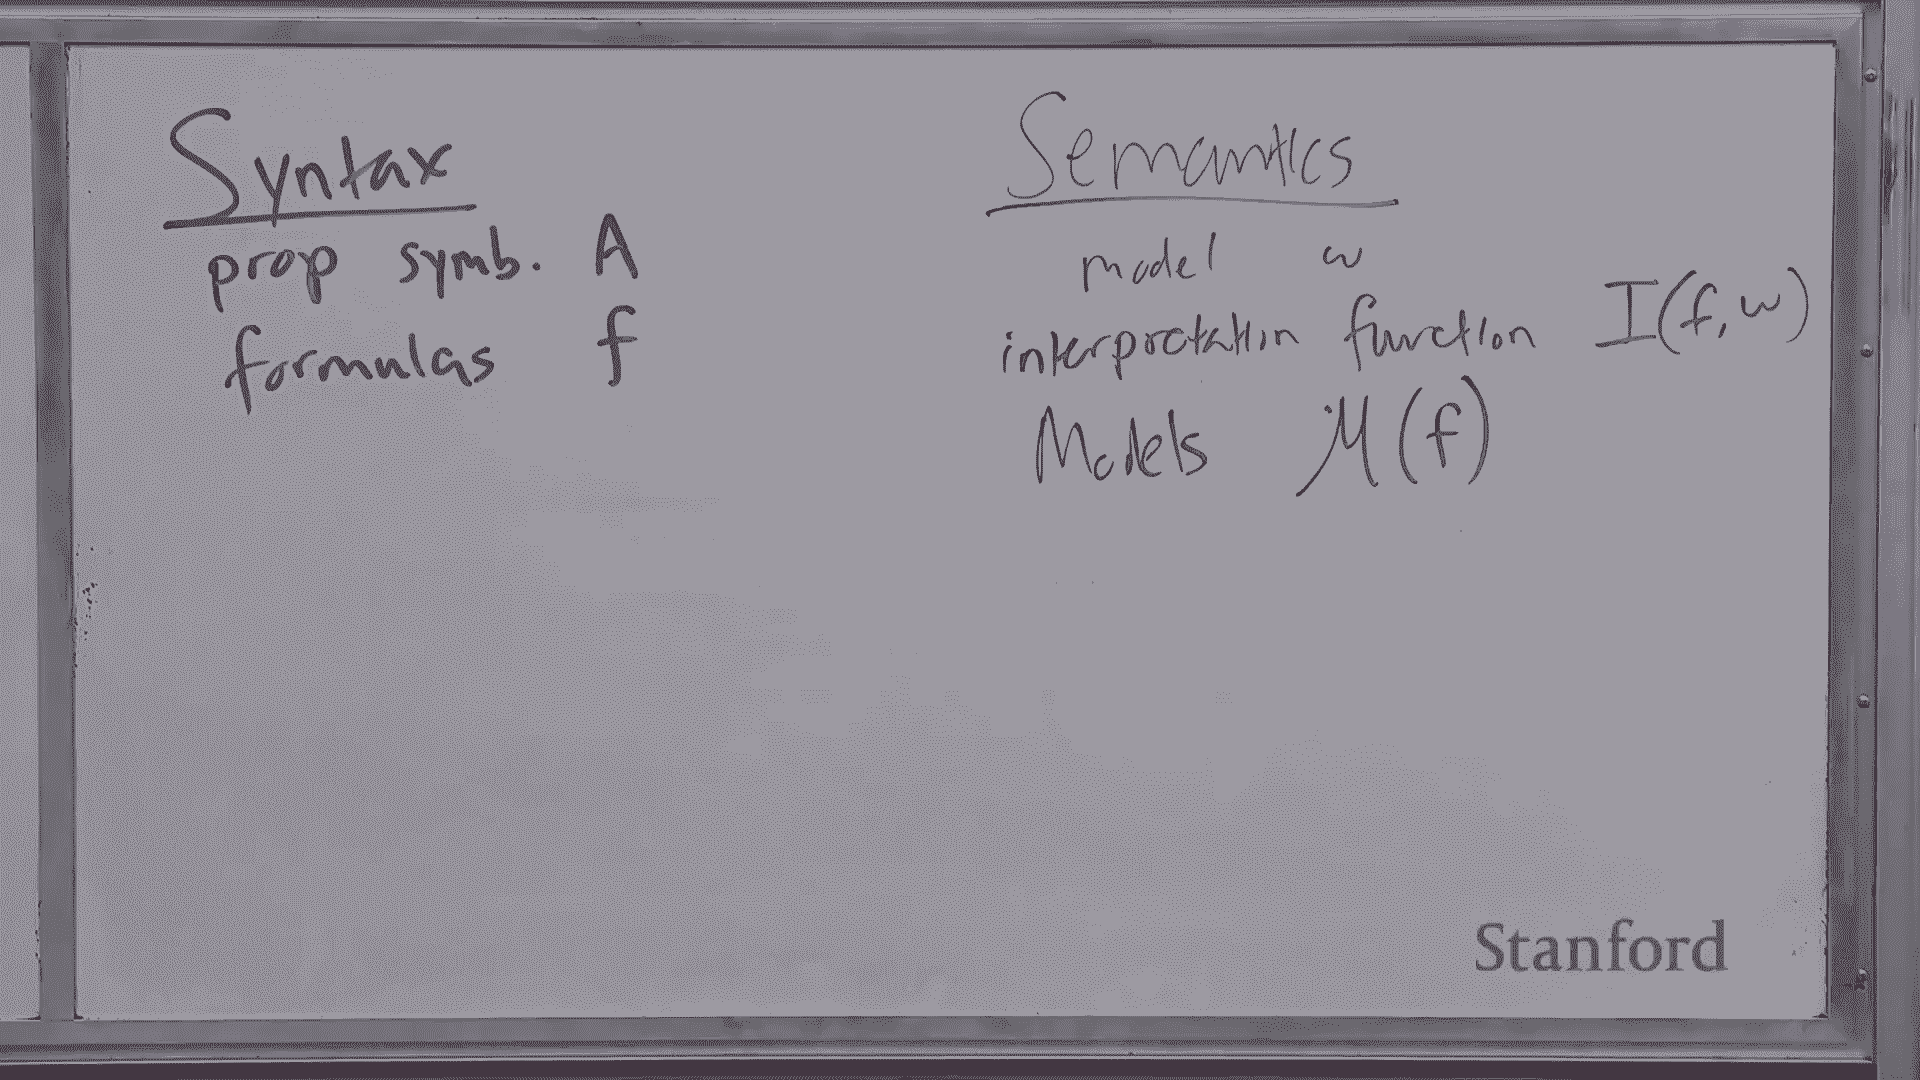 Syntax
prop symb. A
formulas f
Semantics
model w
interpretation function I(f,w)
Models M(f)
Stanford